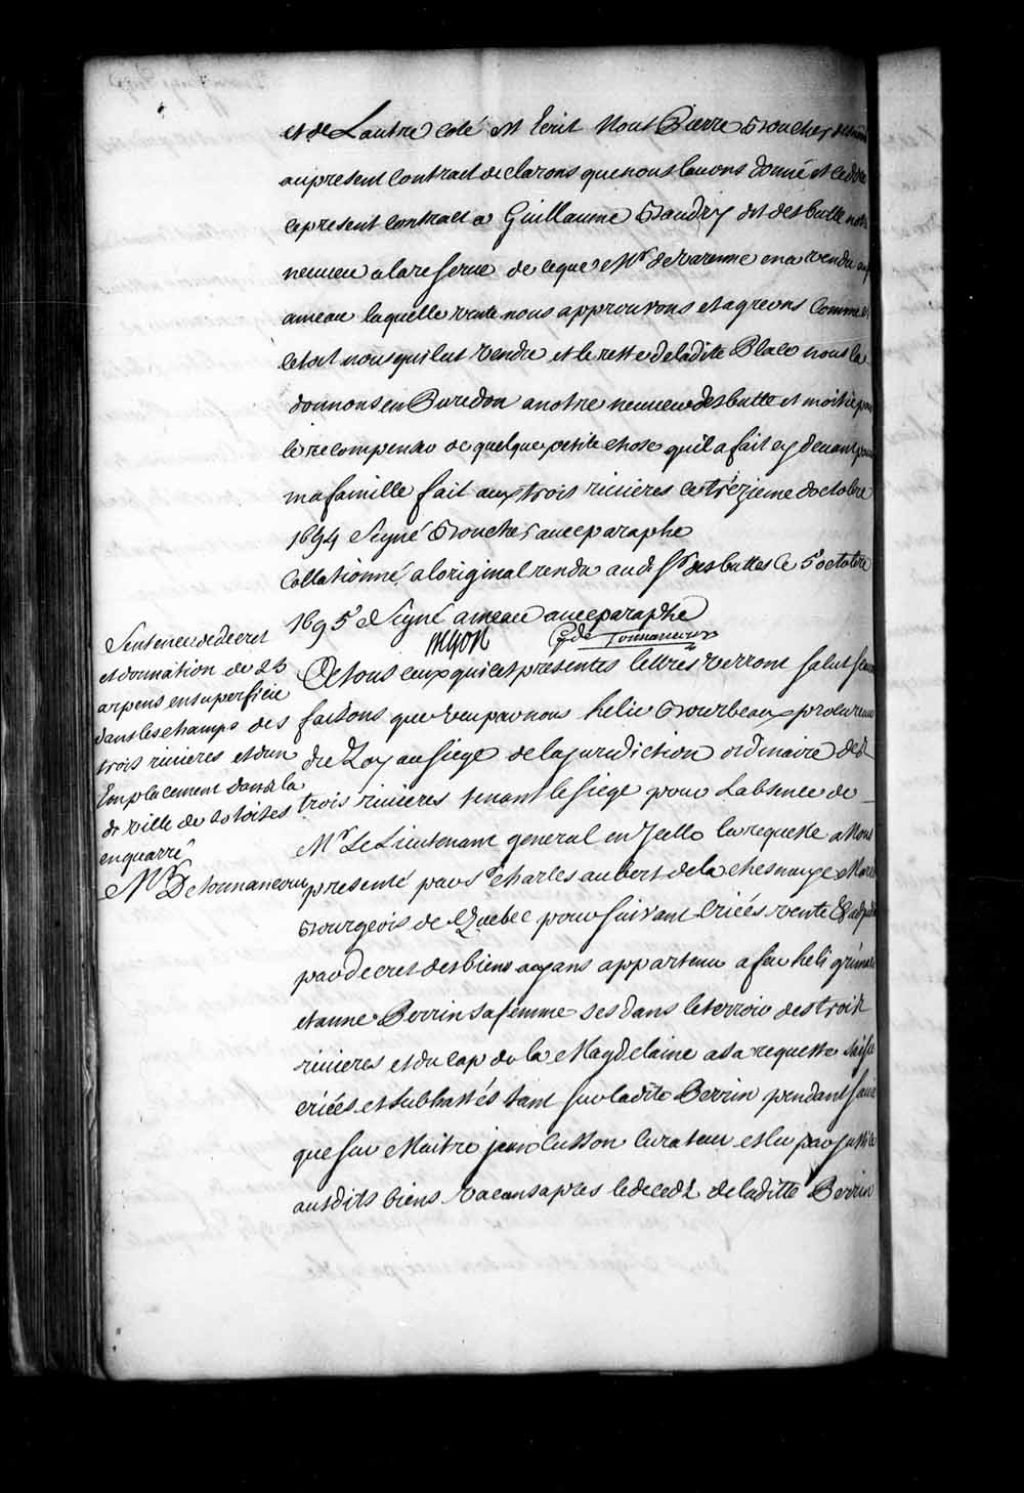 et de Lautre coté est Ecrit Nous Pierre Boucher
aupresent Contract declarons que nous lauons donné et cedde
le present contract a Guillaume Gaudry dit desbutte notre
neueu a la reserue de ceque Mr de Varenne en a vendu
ameau laquelle vente nous approuvons et agreons Comme si
cetoit nous qui leut vendu et le reste de ladite Place nous la
donnons en Pur don a notre neueu desbutte et moitié pour
le recompenser de quelque petite chose quil a fait cy deuant pour
ma famille fait aux trois riuieres ce trezieme doctobre
1694 Signé Boucher auec paraphe
Collationné a loriginal rendu aud Sr desbuttes le 5e octobre
1695 Signé ameau auec paraphe
Begon
De Tonnancour
Sentence de decret
et donnation de 25
arpens en superficie
dans les champs des
trois riuieres et dun
Emplacement dans la
de ville de toises
en quarré
Mr De tonnancour
A tous ceux qui ces presentes lettres verront salut
faisons que veu par nous helie Bourbeaux procureur
du Roy au siege de la jurisdiction ordinaire des
trois riuieres tenant le siege pour Labsence de
Mr Le Lieutenant general en Icelle la requeste a Nous
presenté par Sr charles aubert de la chesnaye
Bourgeois de Quebec poursuivant Criées vente &
par decret des biens ayans appartenu a feu heli
et anne Perrin sa femme ses dans le terroir des trois
riuieres et du cap de la Magdelaine a sa requeste saisie
criées et subhastés tant sur ladite Perrin pendant
que sur Maitre jean Cusson Curateur eslu par justice
ausdits biens vacans apres le deceds de laditte Perrin